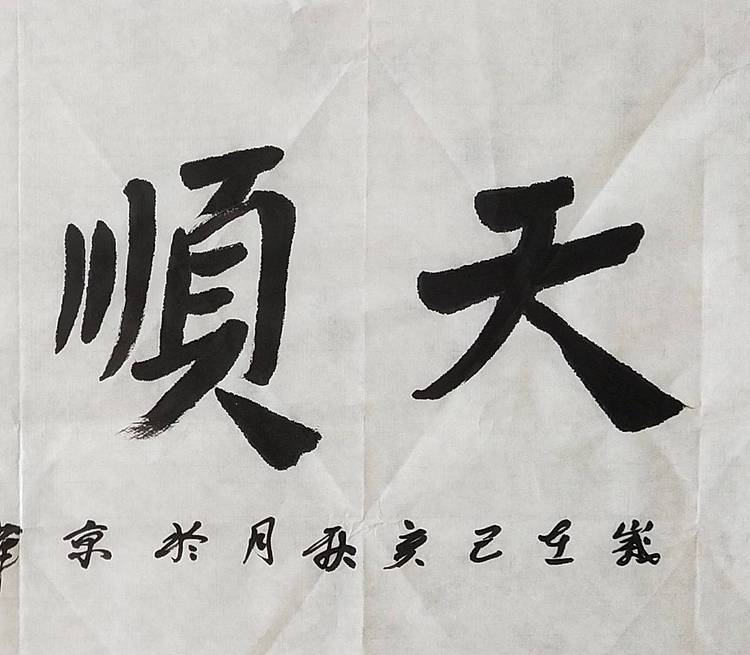 天順
歲在己亥秋月於京華